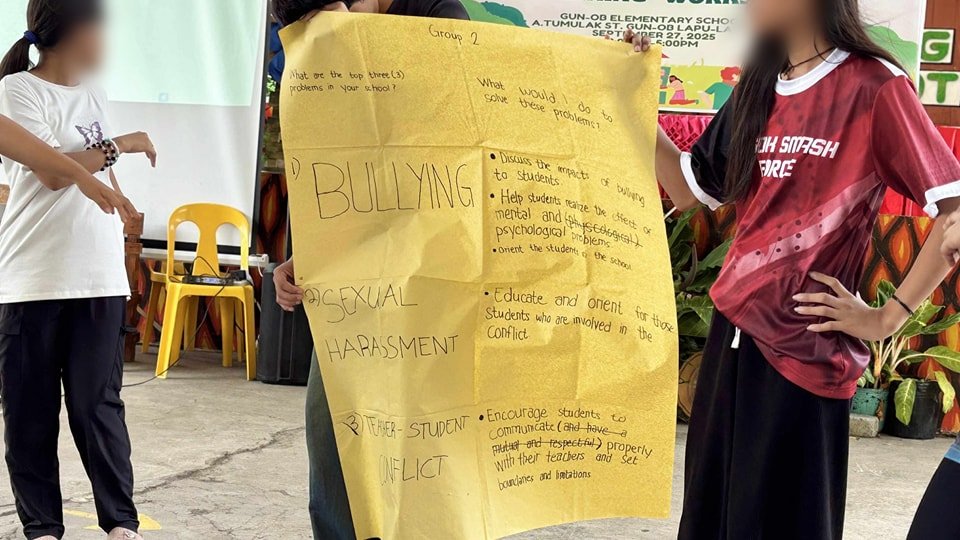 GUN-OB ELEMENTARY SCHOO
A.TUMULAK ST. GUN-OB LAPU-LA
SEPTEMBER 27, 2025
5:00PM
G
OT
Group 2
What are the top three (3)
problems in your school?
What would I do to
solve these problems?
1) BULLYING
• Discuss the impacts of bullying
to students.
• Help students realize the effect of
mental and (physcological)
psychological problems.
• orient the students in the school
2) SEXUAL
HARASSMENT
• Educate and orient for those
students who are involved in the
conflict
3) TEACHER-STUDENT
CONFLICT
• Encourage students to
communicate (and have a
mutual and respectful) properly
with their teachers and set
boundaries and limitations
OK SMASH